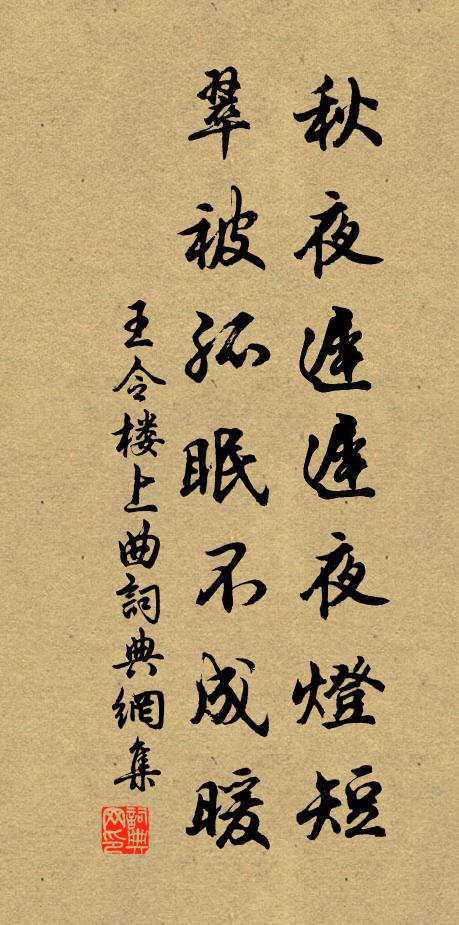 秋夜遲遲夜燈短
翠被孤眠不成暖
王令楼上曲詞典網集
詞典網印